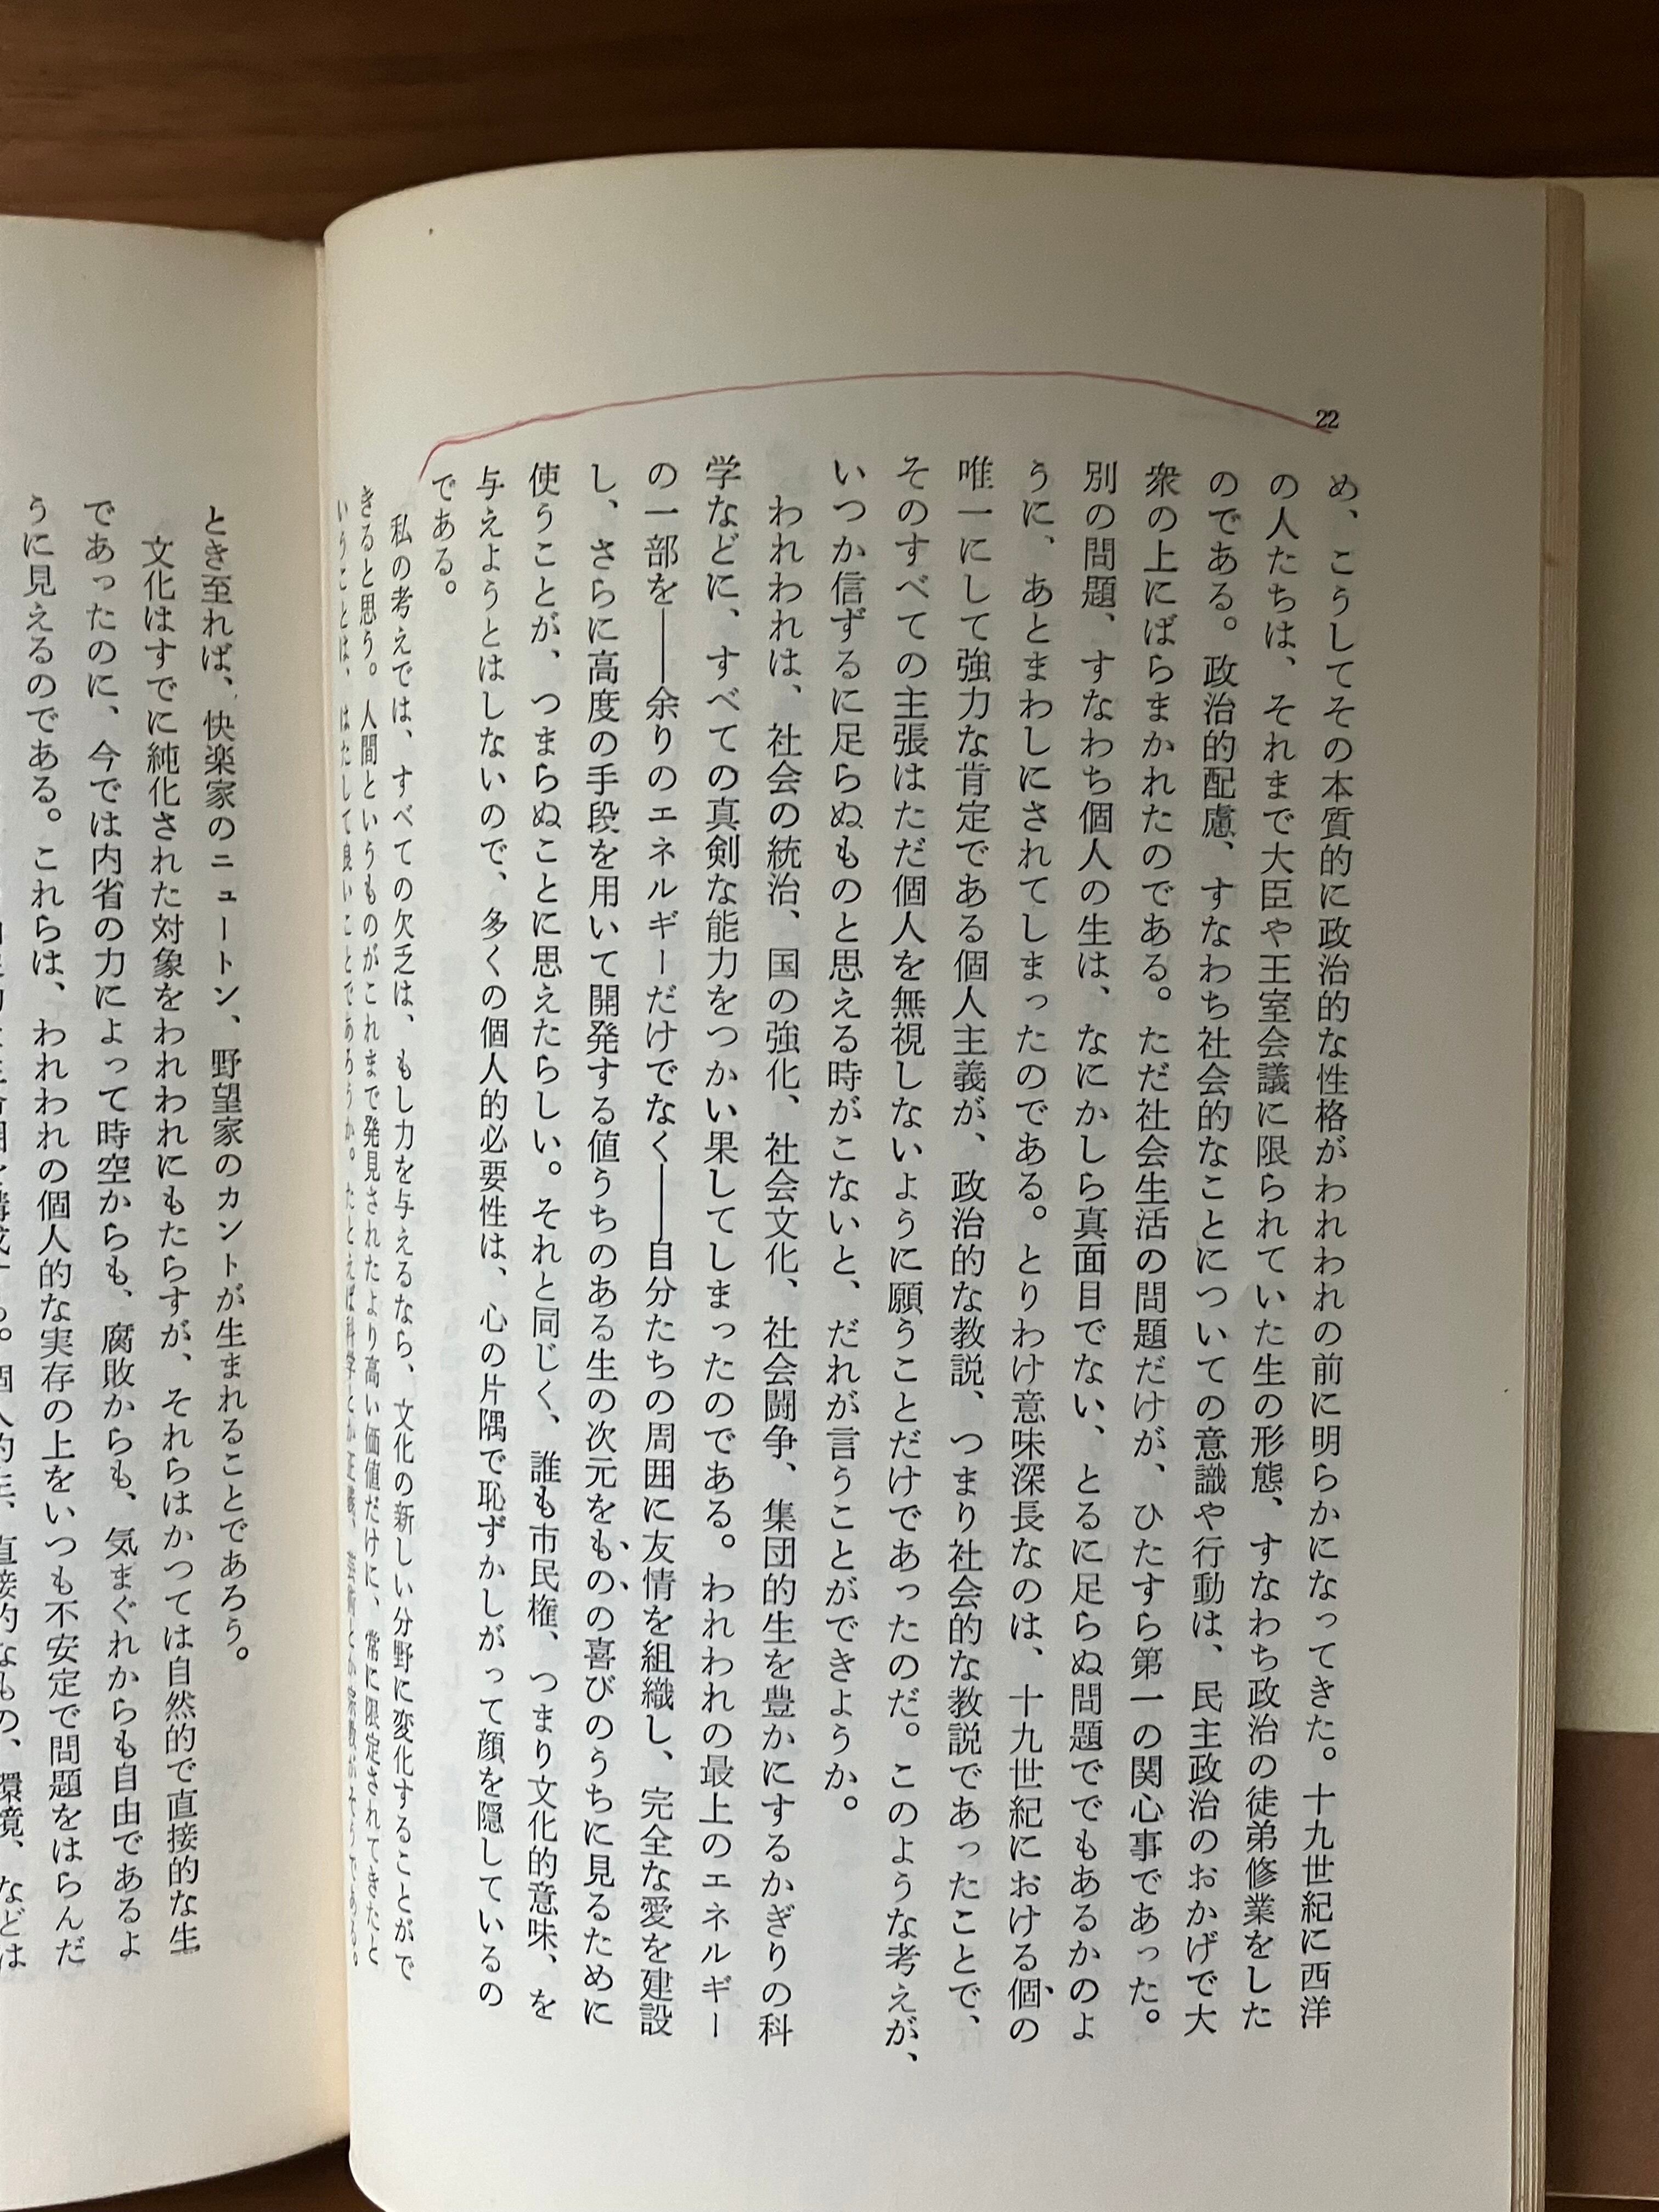 22
め、こうしてその本質的に政治的な性格がわれわれの前に明らかになってきた。十九世紀に西洋
の人たちは、それまで大臣や王室会議に限られていた生の形態、すなわち政治の徒弟修業をした
のである。政治的配慮、すなわち社会的なことについての意識や行動は、民主政治のおかげで大
衆の上にばらまかれたのである。ただ社会生活の問題だけが、ひたすら第一の関心事であった。
別の問題、すなわち個人の生は、なにかしら真面目でない、とるに足らぬ問題ででもあるかのよ
うに、あとまわしにされてしまったのである。とりわけ意味深長なのは、十九世紀における個の
唯一にして強力な肯定である個人主義が、政治的な教説、つまり社会的な教説であったことで、
そのすべての主張はただ個人を無視しないように願うことだけであったのだ。このような考えが、
いつか信ずるに足らぬものと思える時がこないと、だれが言うことができようか。
われわれは、社会の統治、国の強化、社会文化、社会闘争、集団的生を豊かにするかぎりの科
学などに、すべての真剣な能力をつかい果してしまったのである。われわれの最上のエネルギー
の一部を——余りのエネルギーだけでなく——自分たちの周囲に友情を組織し、完全な愛を建設
し、さらに高度の手段を用いて開発する値うちのある生の次元をものの喜びのうちに見るために
使うことが、つまらぬことに思えたらしい。それと同じく、誰も市民権、つまり文化的意味、を
与えようとはしないので、多くの個人的必要性は、心の片隅で恥ずかしがって顔を隠しているの
である。
私の考えでは、すべての欠乏は、もし力を与えるなら、文化の新しい分野に変化することがで
きると思う。人間というものがこれまで発見されたより高い価値だけに、常に限定されてきたと
いうことは、はたして良いことであろうか。たとえば科学とか正義、芸術とか宗教がそうである。
とき至れば、快楽家のニュートン、野望家のカントが生まれることであろう。
文化はすでに純化された対象をわれわれにもたらすが、それらはかつては自然的で直接的な生
であったのに、今では内省の力によって時空からも、腐敗からも、気まぐれからも自由であるよ
うに見えるのである。これらは、われわれの個人的な実存の上をいつも不安定で問題をはらんだ